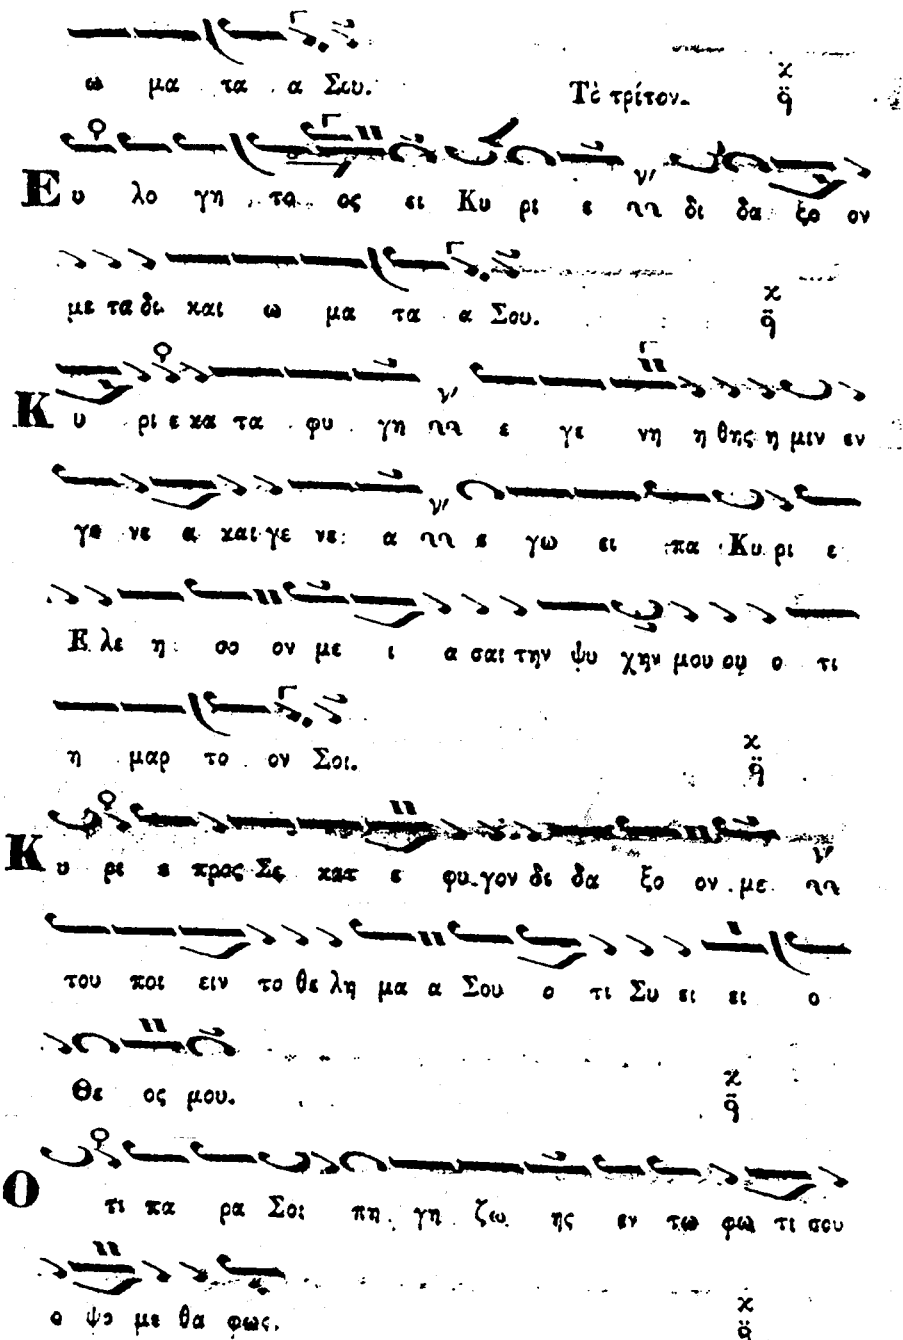 ω μα τα α Σου. Τὸ τρίτον.
Ε υ λο γη το ος ει Κυ ρι ε δι δα ξο ον
με τα δι και ω μα τα α Σου.
Κ υ ρι ε κα τα φυ γη ε γε νη η θης η μιν εν
γε νε α και γε νε α ε γω ει πα Κυ ρι ε
Ε λε η σο ον με ι α σαι την ψυ χην μου ο τι
η μαρ το ον Σοι.
Κ υ ρι ε προς Σε κατ ε φυ γον δι δα ξο ον με
του ποι ειν το θε λη μα α Σου ο τι Συ ει ει ο
Θε ος μου.
Ο τι πα ρα Σοι πη γη ζω ης εν τω φω τι σου
ο ψο με θα φως.